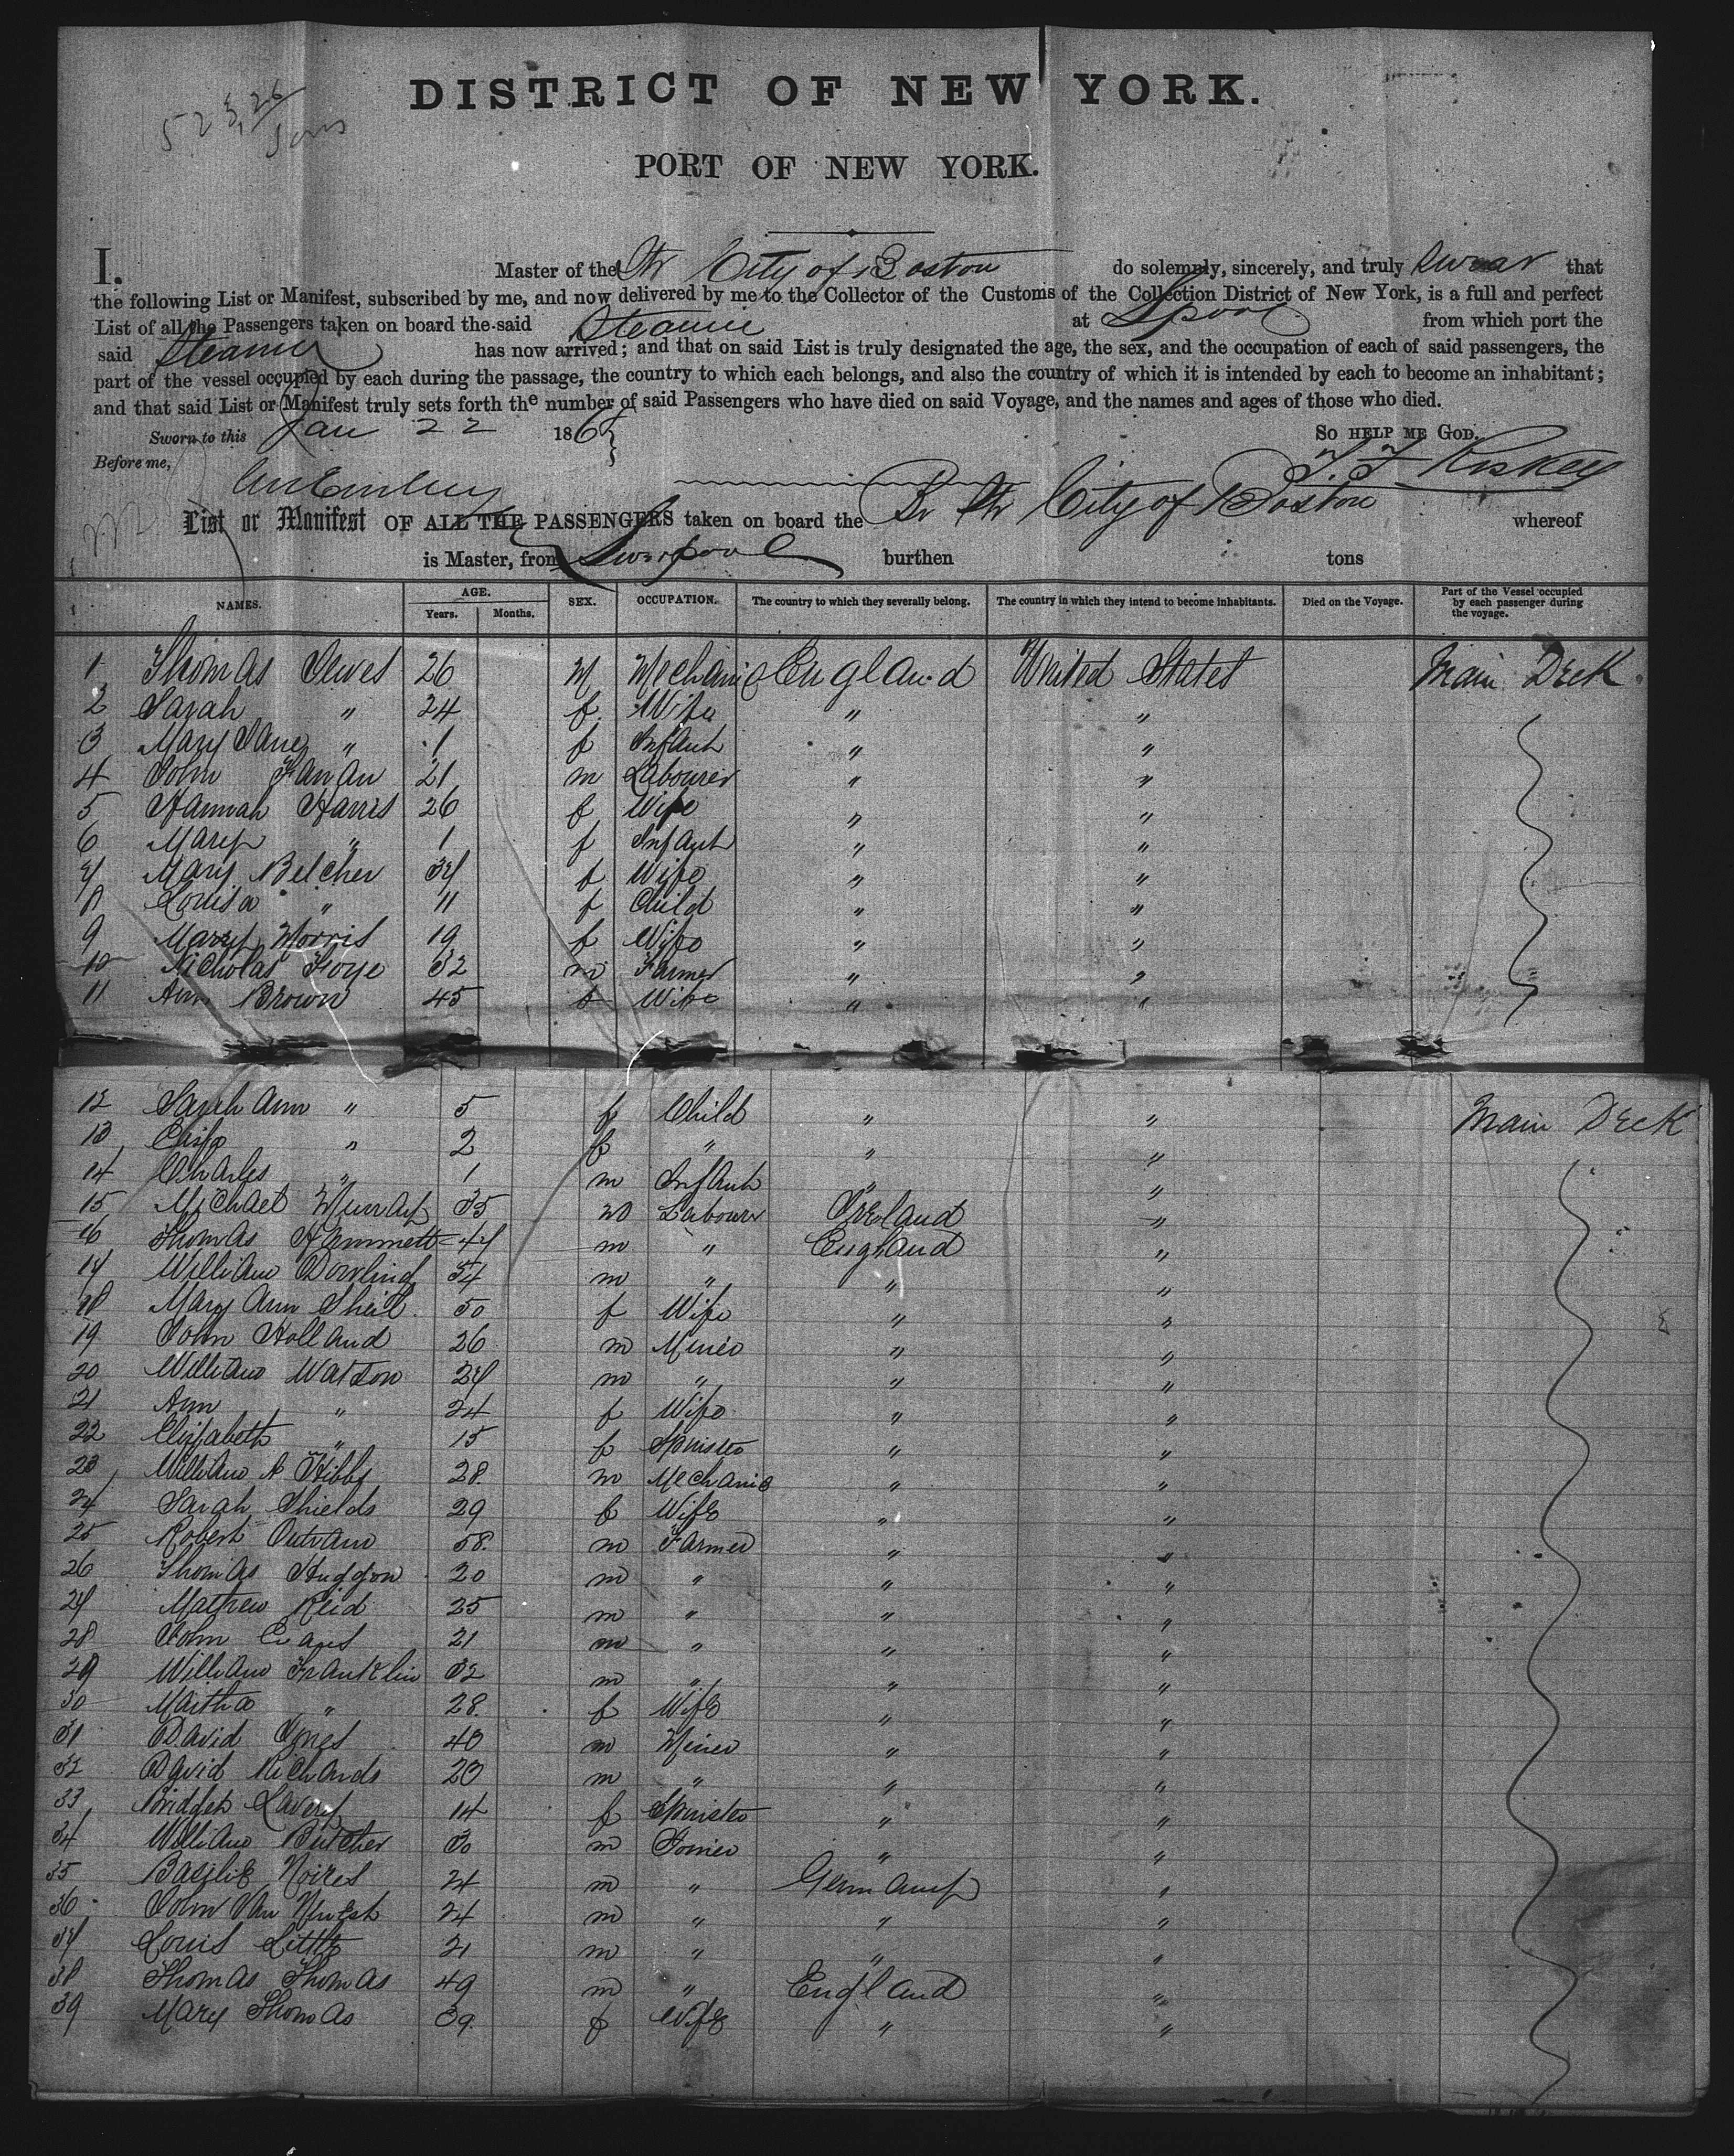 DISTRICT OF NEW YORK.
PORT OF NEW YORK.
I. Master of the Str City of Boston do solemnly, sincerely, and truly swear that
the following List or Manifest, subscribed by me, and now delivered by me to the Collector of the Customs of the Collection District of New York, is a full and perfect
List of all the Passengers taken on board the said Steamer at Lpool from which port the
said Steamer has now arrived; and that on said List is truly designated the age, the sex, and the occupation of each of said passengers, the
part of the vessel occupied by each during the passage, the country to which each belongs, and also the country of which it is intended by each to become an inhabitant;
and that said List or Manifest truly sets forth the number of said Passengers who have died on said Voyage, and the names and ages of those who died.
Sworn to this Jan 22 186 So help me God.
Before me,
List or Manifest OF ALL THE PASSENGERS taken on board the Br Str City of Boston whereof
is Master, from Liverpool burthen tons
NAMES. AGE. Years. Months. SEX. OCCUPATION. The country to which they severally belong. The country in which they intend to become inhabitants. Died on the Voyage. Part of the Vessel occupied by each passenger during the voyage.
1 Thomas 26 M Mechanic England United States Main Deck
2 Sarah " 24 f Wife " "
3 Mary Jane " 1 f Infant " "
4 John 21 m Labourer " "
5 Hannah Harris 26 f Wife " "
6 Mary " 1 f Infant " "
7 Mary Belcher 37 f Wife " "
8 Louisa " 11 f Child " "
9 Mary Morris 19 f Wife " "
10 Nicholas Foye 32 m Farmer " "
11 Ann Brown 45 f Wife " "
12 Sarah Ann " 5 f Child " " Main Deck
13 Eliza " 2 f " " "
14 Charles " 1 m Infant " "
15 Michael Murray 35 m Labourer Ireland "
16 Thomas Hemmett 47 m " England "
17 William Dowling 54 m " " "
18 Mary Ann Sheil 50 f Wife " "
19 John Holland 26 m Miner " "
20 William Watson 27 m " " "
21 Ann " 24 f Wife " "
22 Elizabeth " 15 f Spinster " "
23 William A Hibbs 28 m Mechanic " "
24 Sarah Shields 29 f Wife " "
25 Robert Outram 58 m Farmer " "
26 Thomas Hudson 20 m " " "
27 Mathew Reid 25 m " " "
28 John Evans 21 m " " "
29 William Franklin 32 m " " "
30 Martha " 28 f Wife " "
31 David Jones 40 m Miner " "
32 David Richards 20 m " " "
33 Bridget Lavery 14 f Spinster " "
34 William Butcher 30 m " "
35 Noires 24 m " Germany "
36 John Van 24 m " " "
37 Louis Little 21 m " " "
38 Thomas Thomas 49 m " England "
39 Mary Thomas 39 f Wife " "